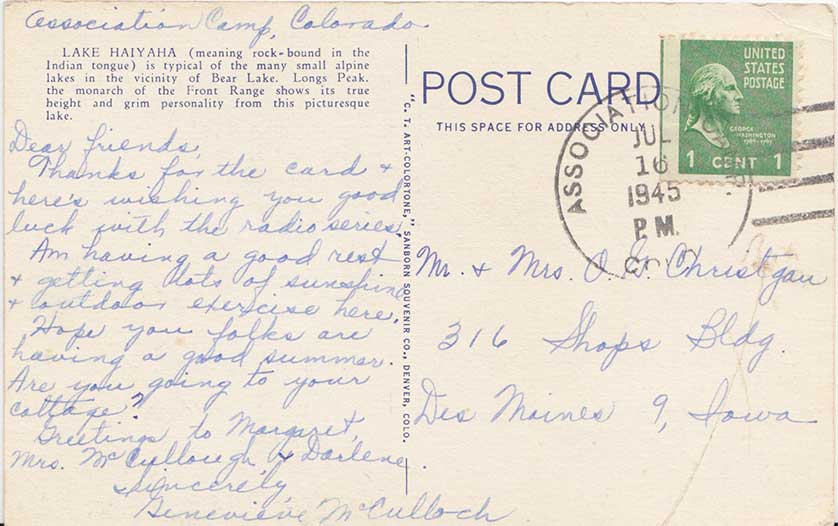 Association Camp, Colorado.
LAKE HAIYAHA (meaning rock-bound in the
Indian tongue) is typical of the many small alpine
lakes in the vicinity of Bear Lake. Longs Peak,
the monarch of the Front Range shows its true
height and grim personality from this picturesque
lake.
Dear friends,
Thanks for the card +
here's wishing you good
luck with the radio series.
Am having a good rest
+ getting lots of sunshine
+ outdoor exercise here.
Hope you folks are
having a good summer.
Are you going to your
cottage?
Greetings to Margaret,
Mrs. McCullough & Darlene.
Sincerely
Genevieve McCulloch
"C. T. ART-COLORTONE," SANBORN SOUVENIR CO., DENVER, COLO.
POST CARD
THIS SPACE FOR ADDRESS ONLY
ASSOCIATION
JUL
16
1945
P.M.
COLO.
UNITED
STATES
POSTAGE
GEORGE
WASHINGTON
1 CENT 1
Mr. & Mrs. O. G. Christgau
316 Shops Bldg.
Des Moines 9, Iowa